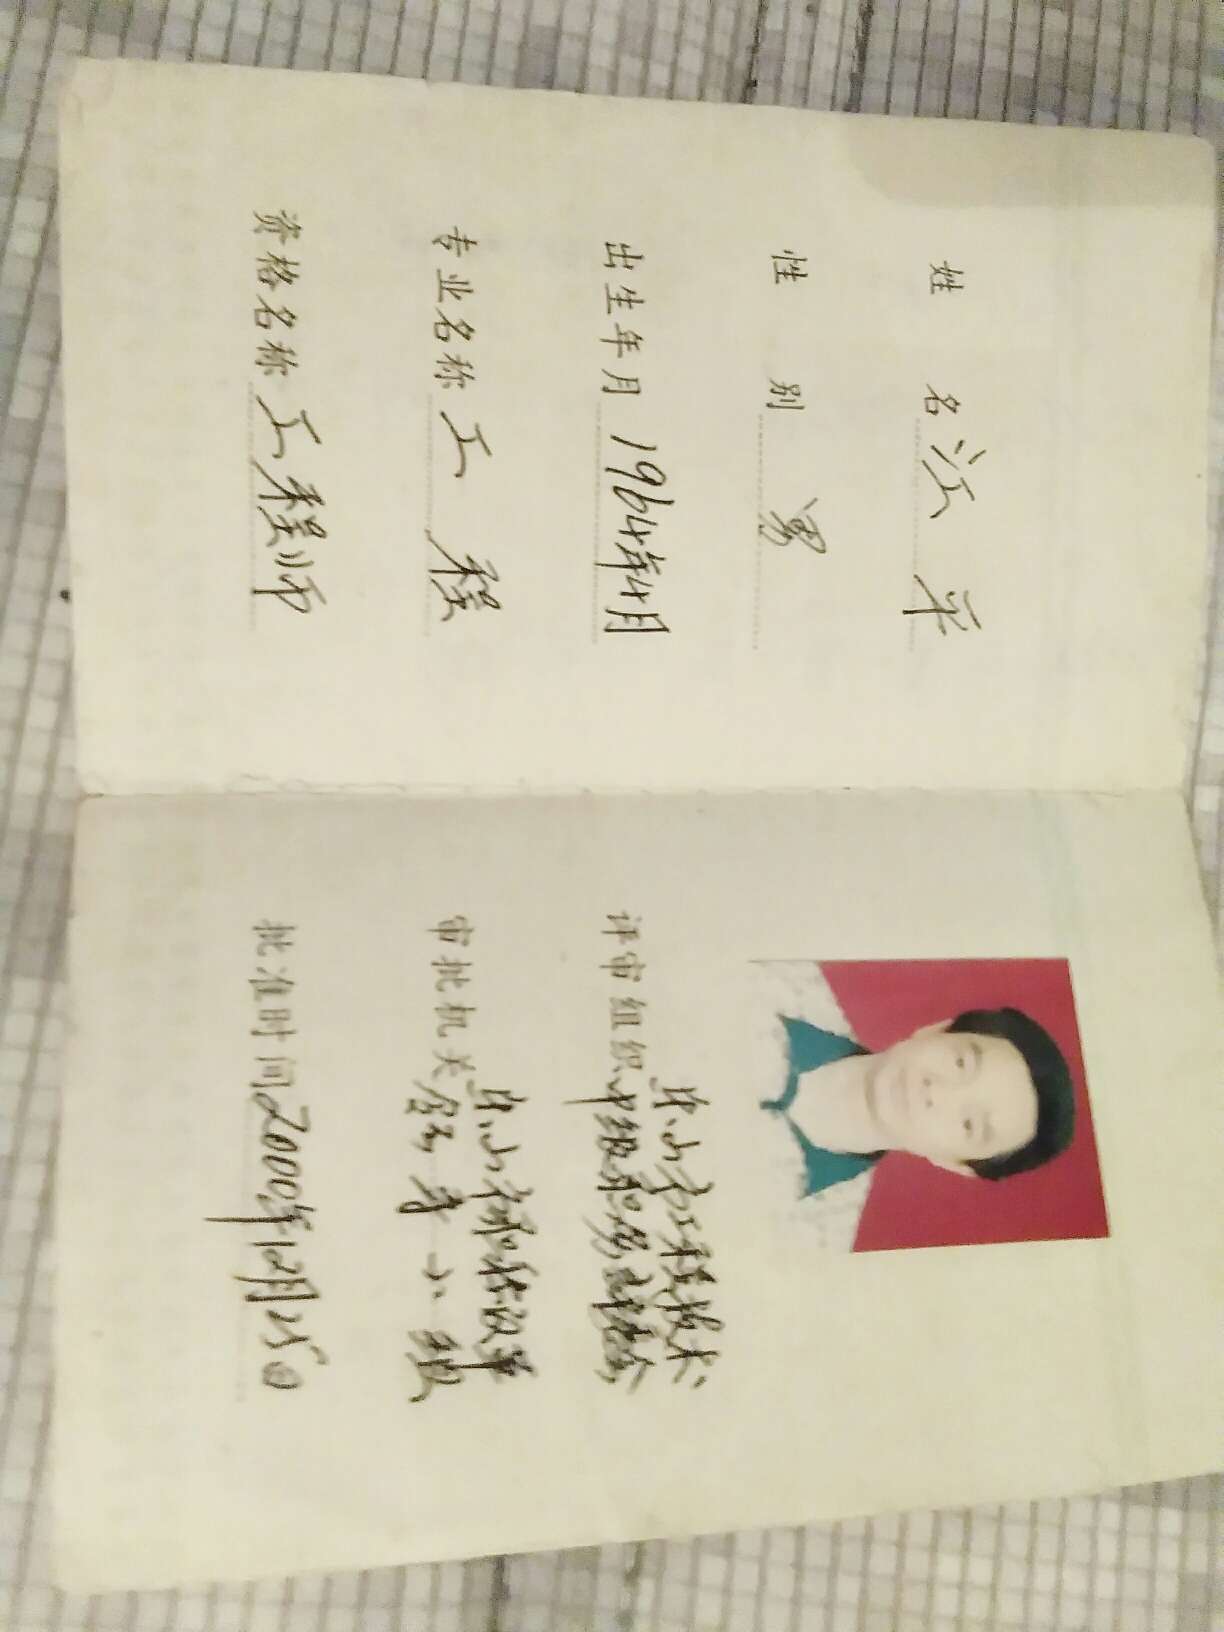 姓名 江平
性别 男
出生年月 1964年4月
专业名称 工程
资格名称 工程师
评审组织 乐山市工程技术
中级职务评委会
审批机关 乐山市职称改革
领导小组
批准时间 2000年12月25日